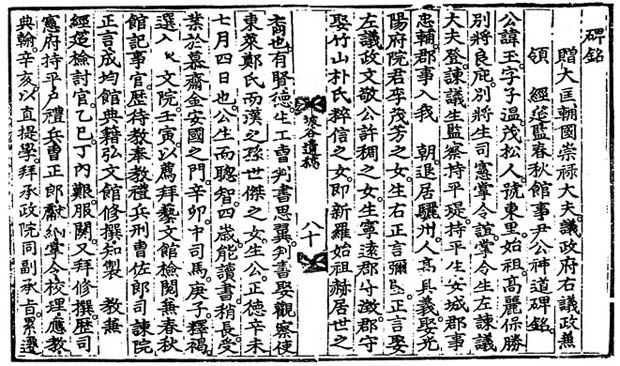 碑銘
贈大匡輔國崇祿大夫議政府右議政兼
領 經筵監春秋館事尹公神道碑銘
公諱玉字子溫茂松人號東里始祖高麗保勝
別將良庇別將生司憲掌令誼掌令生左諫議
大夫登諫議生監察持平珽持平生安城郡事
忠輔郡事入我 朝退居驪州人高其義娶光
陽府院君李茂芳之女生右正言彌堅正言娶
左議政文敬公許稠之女生寧遠郡守澂郡守
娶竹山朴氏粹信之女即新羅始祖赫居世之
坡谷遺稿 八十
裔也有賢德生工曹判書思翼判書娶觀察使
東萊鄭氏而漢之孫世傑之女生公正德辛未
七月四日也公生而聰智四歲能讀書稍長受
業於慕齋金安國之門辛卯中司馬庚子釋褐
選入 文院壬寅以薦拜藝文館檢閱兼春秋
館記事官歷待教奉教禮兵刑曹佐郎司諫院
正言成均館典籍弘文館修撰知製 教兼
經筵檢討官乙巳丁內艱服闋又拜修撰歷司
憲府持平戶禮兵曹正郎獻納掌令校理應教
典翰辛亥以直提學拜承政院同副承旨累遷